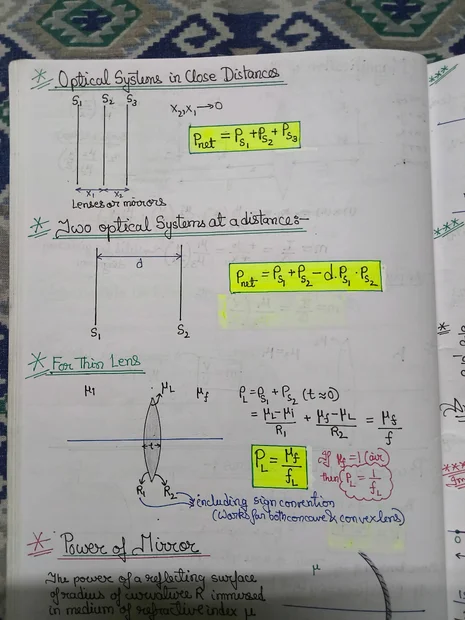 * Optical Systems in Close Distances
S₁ S₂ S₃
x₂, x₁ → 0
Pnet = Ps₁ + Ps₂ + Ps₃
x₁ x₂
Lenses or mirrors
* Two optical Systems at a distance:-
d
Pnet = Ps₁ + Ps₂ - d. Ps₁ · Ps₂
S₁ S₂
* For Thin Lens
μ₁ μL μf
PL = Ps₁ + Ps₂ (t≈0)
= μL-μ1/R₁ + μf-μL/R₂ = μf/f
t
PL = μf/fL
If μf = 1 (air)
then PL = 1/fL
R₁ R₂
including sign convention
(Works for both concave & convex lens)
* Power of Mirror
The power of a reflecting surface
of radius of curvature R immersed
in medium of refractive index μ
μ